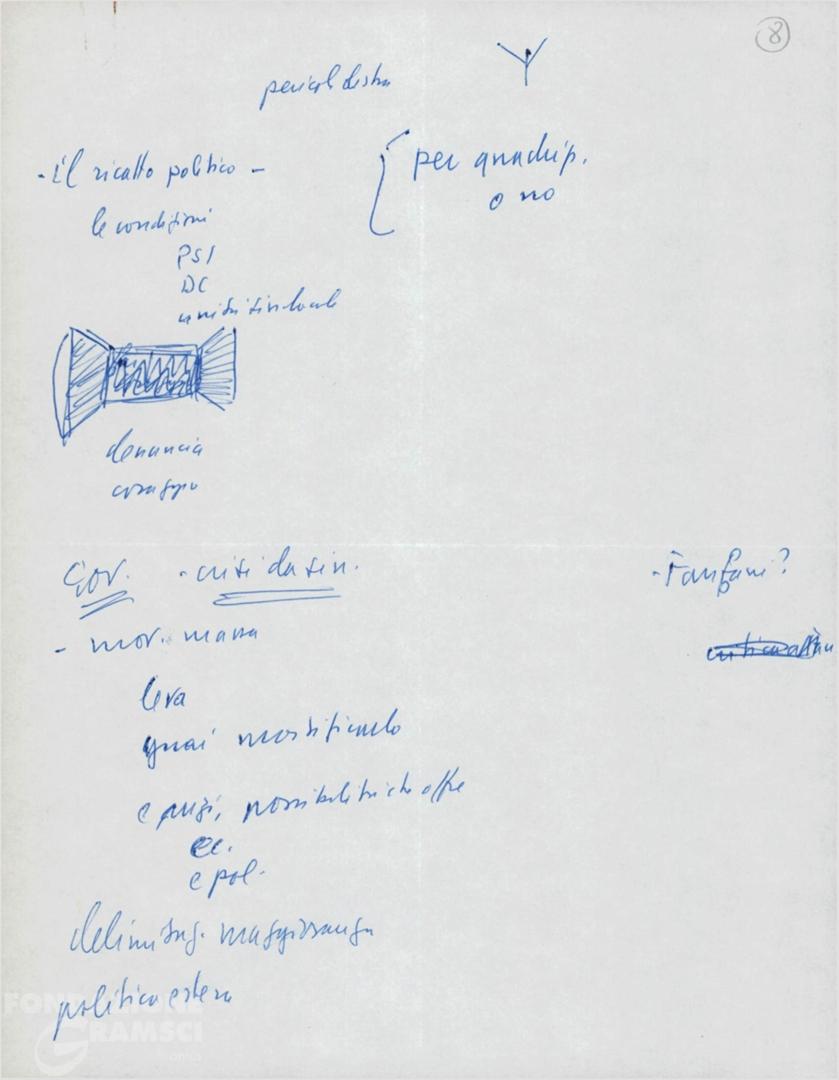 8
pericol destra
- il ricatto politico -
le condizioni
PSI
DC
unità sindacale
per quadrip.
o no
denuncia
coraggio
Gov. - crisi da sin.
- Fanfani?
- mov. massa
leva
guai mortificarlo
e anzi, possibilità che offre
ec.
e pol.
delimitaz. maggioranza
politica estera
FONDAZIONE
GRAMSCI
onlus